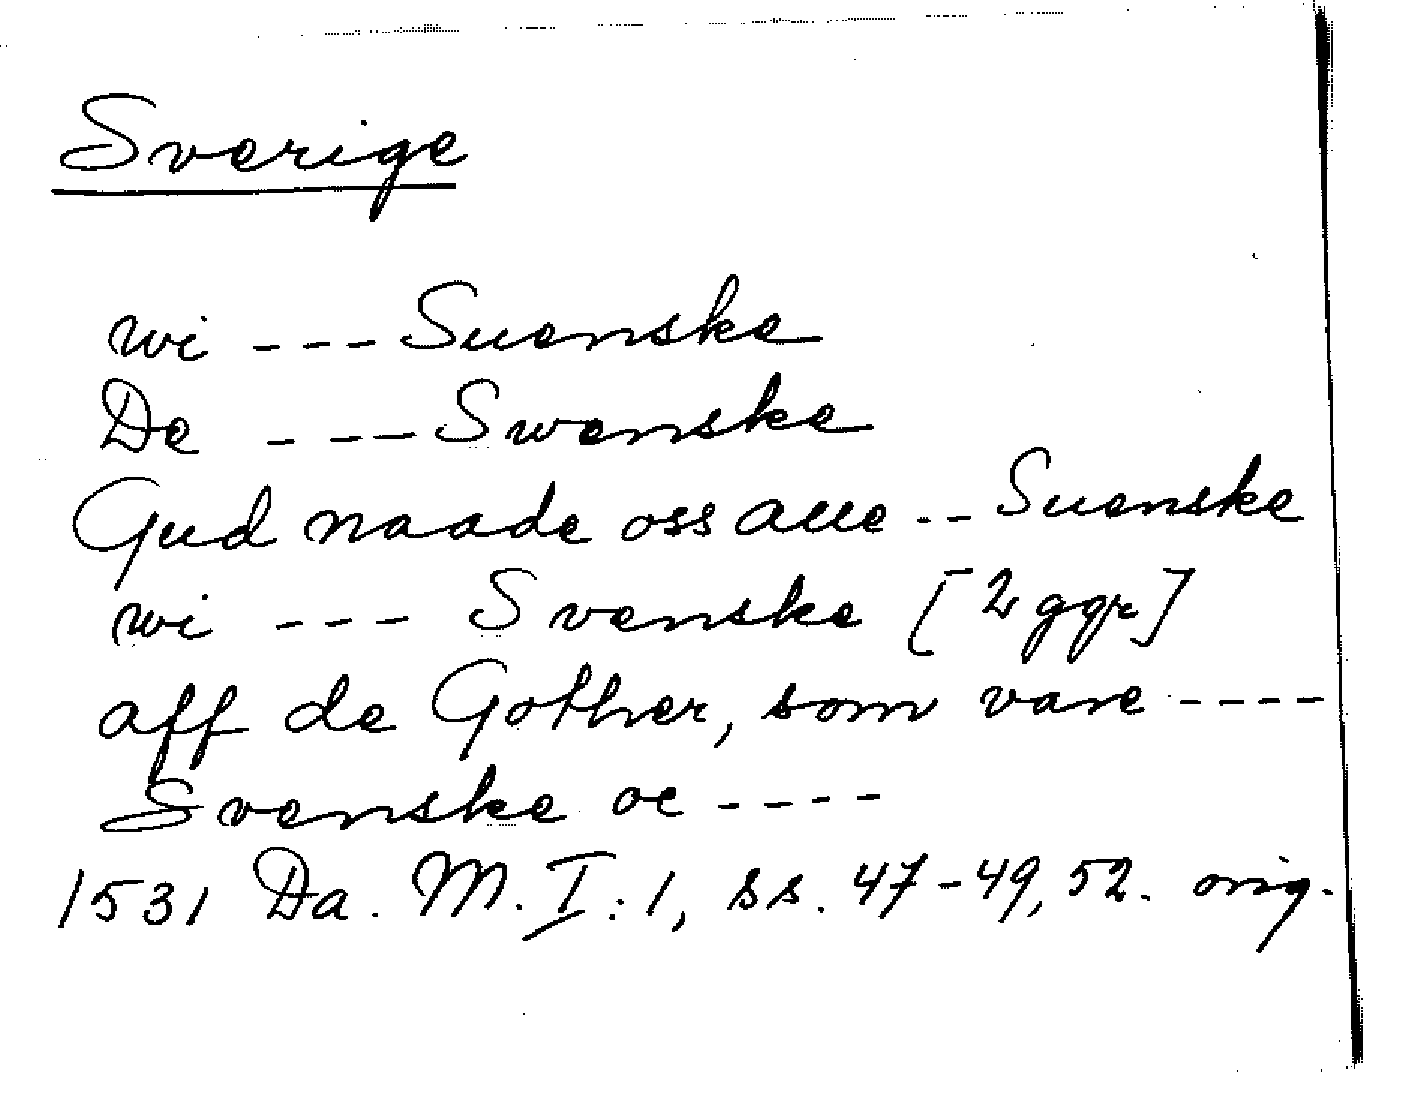 Sverige
wi --- Suenske
De ---- Swenske
Gud naade oss alle -- Suenske
wi --- Svenske [2 ggr]
aff de Gother, som vare ----
Svenske oc ----
1531 Da. M. I:1, ss. 47-49, 52. orig.